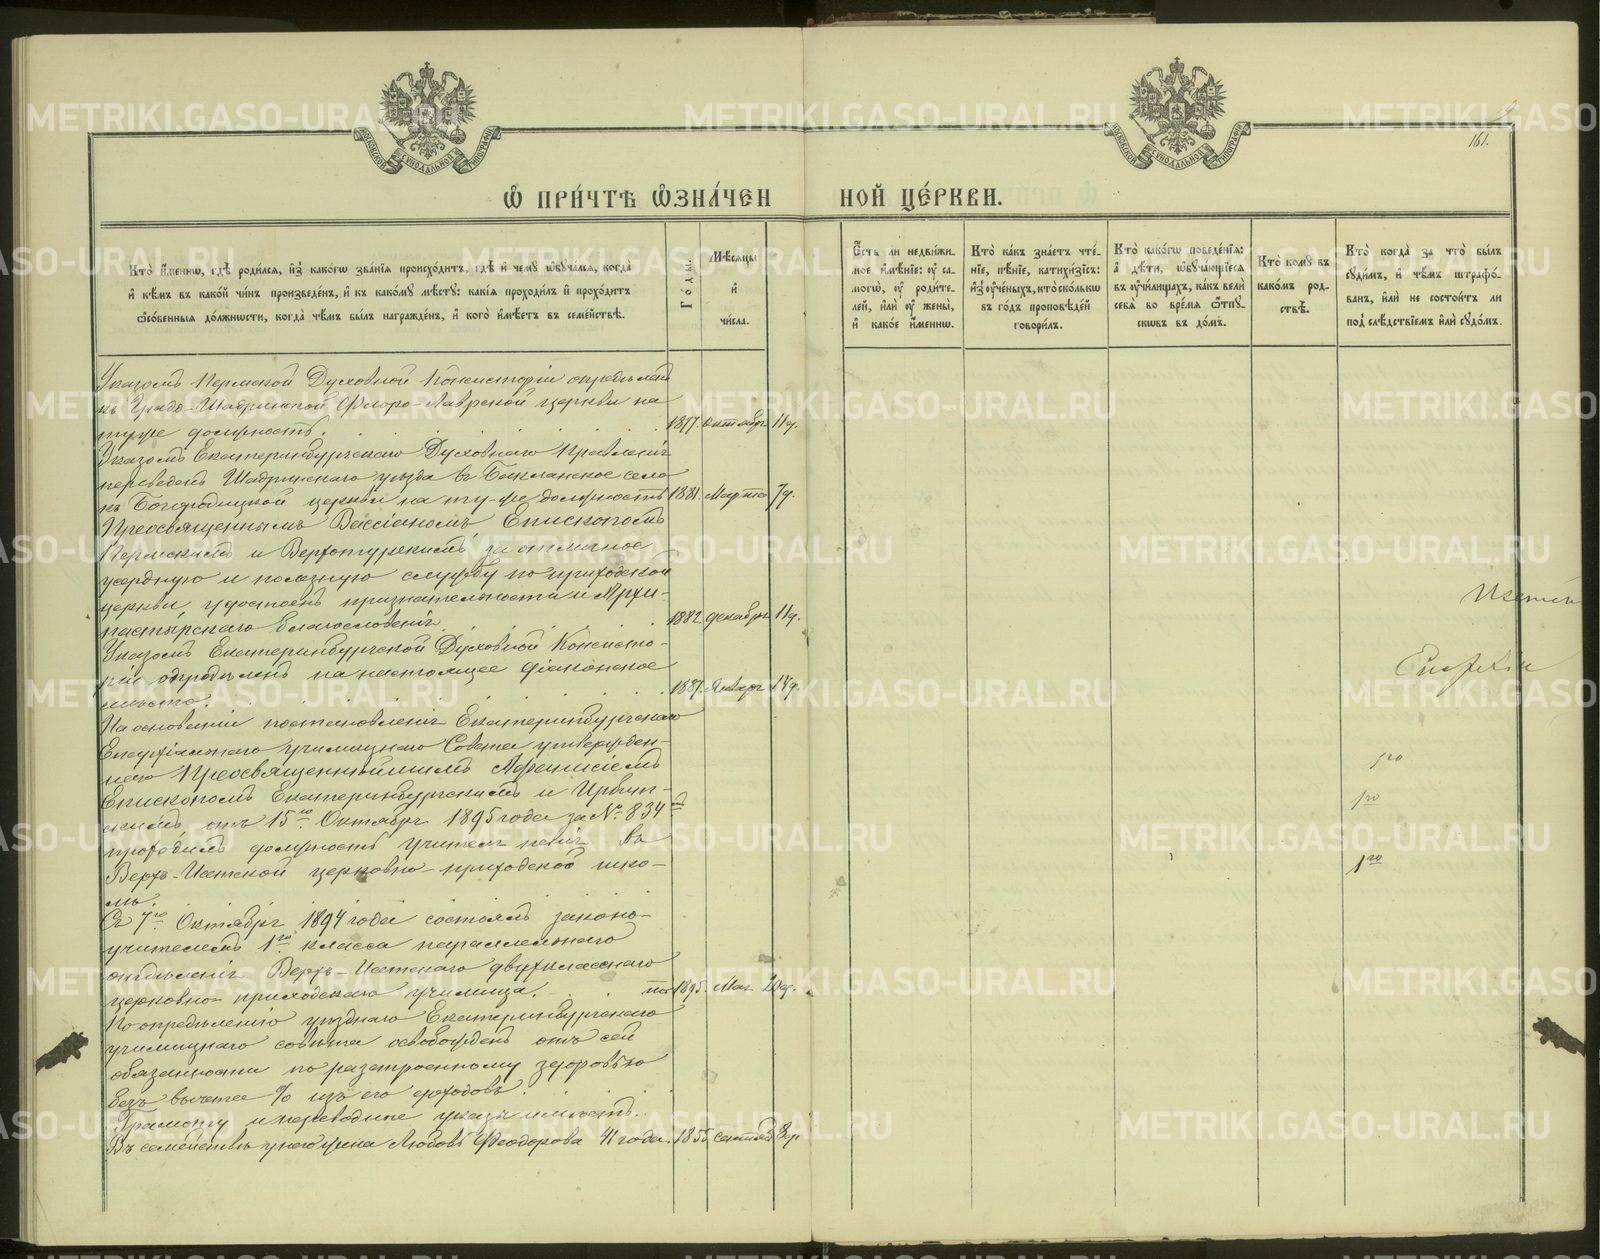 161.
Ѡ ПРИ́ЧТѢ Ѡ҆ЗНА́ЧЕННОЙ ЦЕ́РКВИ.
Кто̀ и҆́менно, гдѣ̀ роди́лся, и҆з̾ како́гѡ зва́нїѧ происхо́дитъ, гдѣ̀ и҆ чему̀ ѡ҆буча́лсѧ, когда̀
и҆ кѣ́мъ въ како́й чи́нъ произведе́нъ, и҆ къ како́му мѣ́сту: какі́ѧ проходи́лъ и҆ прохо́дитъ
ѻ҆со́бенныѧ до́лжности, когда̀ чѣ́мъ бы́лъ награжде́нъ, и҆ кого̀ и҆мѣ́етъ въ семе́йствѣ.
Го́ды.
Мѣ́сѧцы
и҆
чи́сла.
Е҆́сть ли недви́жи-
мое и҆мѣ́нїе: ᲂу҆ са-
могѡ̀, ᲂу҆ роди́те-
лей, и҆лѝ ᲂу҆ жены̀,
и҆ како́е и҆́менно.
Кто̀ ка́къ зна́етъ чте́-
нїе, пѣ́нїе, катихи́зїсъ:
и҆з̾ ᲂу҆че́ныхъ, кто̀ ско́лькѡ
въ го́дъ проповѣ́дей
говори́лъ.
Кто̀ како́гѡ поведе́нїѧ:
а҆ дѣ́ти, ѡ҆буча́ющїесѧ
въ ᲂу҆чи́лищахъ, ка́къ велѝ
себѧ̀ во вре́мѧ ѿпу-
скѡвъ въ до́мъ.
Кто̀ кому̀ въ
како́мъ род-
ствѣ̀.
Кто̀ когда̀ за что̀ бы́лъ
суди́мъ, и҆ чѣ́мъ штрафо́-
ванъ, и҆лѝ не состои́тъ ли
под̾ слѣ́дствїемъ и҆лѝ судо́мъ.
Указомъ Пермской Духовной Консисторіи опредѣленъ
къ Градо-Шадринской Флоро-Лаврской церкви на
туже должность. 1877. октября 11 д.
Указомъ Екатеринбургскаго Духовнаго Правленія
переведенъ Шадринскаго уѣзда въ село
къ Богородицкой церкви на ту-же должность 1881. Марта 7 д.
Преосвященнымъ Вассіаномъ Епископомъ
Пермскимъ и Верхотурскимъ за отличное
усердную и полезную службу по приходской
церкви, удостоенъ признательности и Архи-
пастырскаго благословенія. 1882. декабря 11 д.
Указомъ Екатеринбургской Духовной Консисто-
ріи опредѣленъ на настоящее діаконское
мѣсто. 1887. Января 14 д.
На основаніи постановленія Екатеринбургскаго
Епархіальнаго училищнаго Совета утвержден-
наго Преосвященнѣйшимъ Афанасіемъ
Епископомъ Екатеринбургскимъ и Ирбит-
скимъ отъ 15го Октября 1895 года за № 834
проходилъ должность учителя пенія въ
Верхъ-Исетской церковно-приходской шко-
лѣ.
Съ 7го Октября 1894 года состоялъ законо-
учителемъ 1го класса параллельнаго
отдѣленія Верхъ-Исетскаго двухкласснаго
церковно-приходскаго училища. по 1895. Мая 20 д.
По опредѣленію уѣзднаго Екатеринбургскаго
училищнаго совѣта освобожденъ отъ сей
обязанности по разстроенному здоровью
безъ вычета % изъ его доходовъ.
Грамоту и переводные указы имѣетъ.
Въ семействѣ у него жена Любовь Феодорова 41 года. 1855. 8 д.
1го
1го
1го